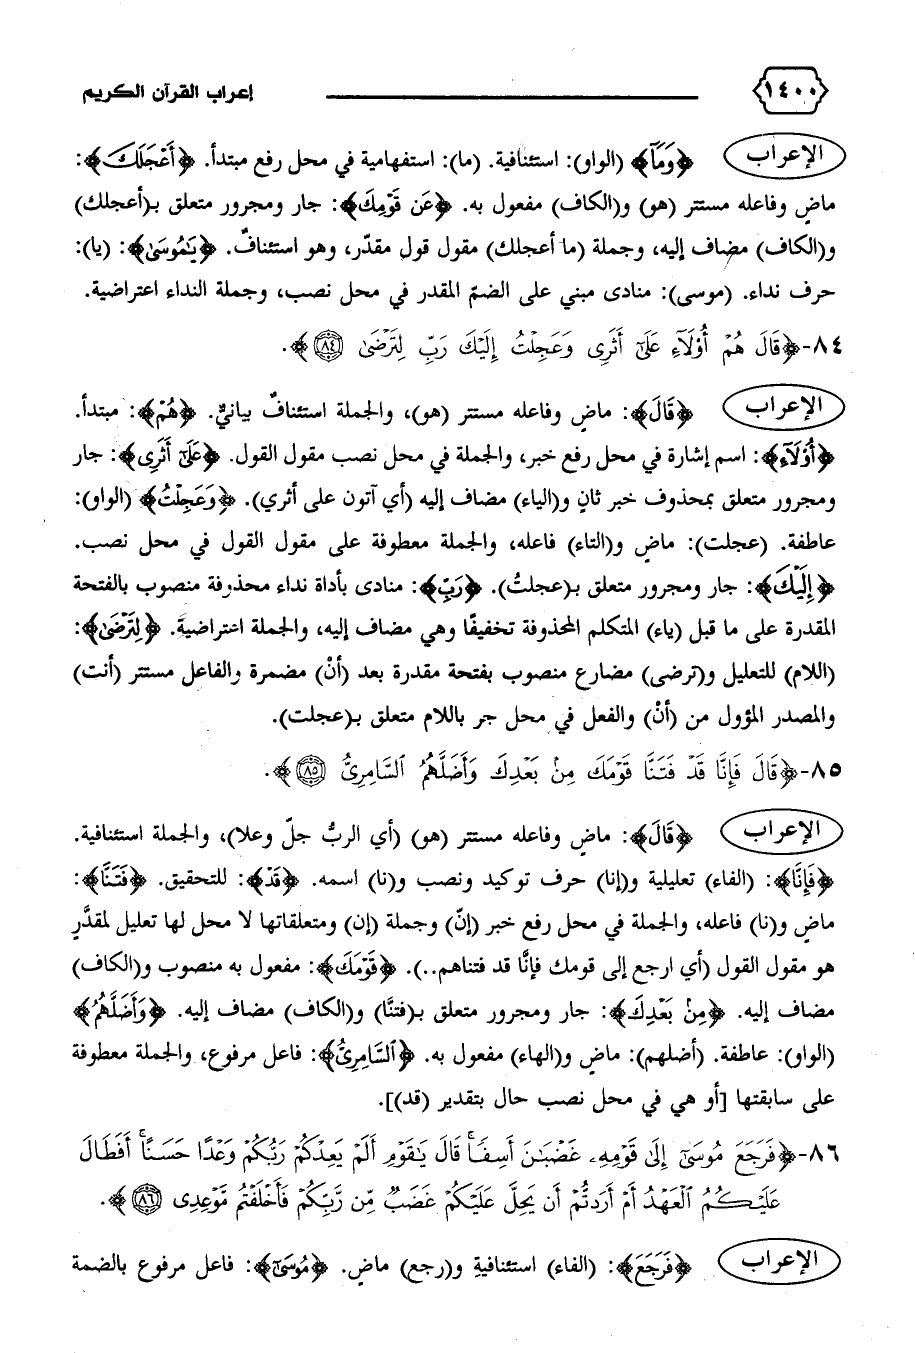 ١٤٠٠ إعراب القرآن الكريم
الإعراب ﴿وَمَآ﴾ (الواو): استئنافية. (ما): استفهامية في محل رفع مبتدأ. ﴿أَعْجَلَكَ﴾:
ماضٍ وفاعله مستتر (هو) و(الكاف) مفعول به. ﴿عَن قَوْمِكَ﴾: جار ومجرور متعلق بـ(أعجلك)
و(الكاف) مضاف إليه، وجملة (ما أعجلك) مقول قولٍ مقدّر، وهو استئنافٌ. ﴿يَٰمُوسَىٰ﴾: (يا):
حرف نداء. (موسى): منادى مبني على الضمّ المقدر في محل نصب، وجملة النداء اعتراضية.
٨٤-﴿قَالَ هُمْ أُوْلَآءِ عَلَىٰٓ أَثَرِى وَعَجِلْتُ إِلَيْكَ رَبِّ لِتَرْضَىٰ ٨٤﴾.
الإعراب ﴿قَالَ﴾: ماضٍ وفاعله مستتر (هو)، والجملة استئنافٌ بيانيٌّ. ﴿هُمْ﴾: مبتدأ.
﴿أُوْلَآءِ﴾: اسم إشارة في محل رفع خبر، والجملة في محل نصب مقول القول. ﴿عَلَىٰٓ أَثَرِى﴾: جار
ومجرور متعلق بمحذوف خبر ثانٍ و(الياء) مضاف إليه (أي آتون على أثري). ﴿وَعَجِلْتُ﴾ (الواو):
عاطفة. (عجلت): ماضٍ و(التاء) فاعله، والجملة معطوفة على مقول القول في محل نصب.
﴿إِلَيْكَ﴾: جار ومجرور متعلق بـ(عجلتُ). ﴿رَبِّ﴾: منادى بأداة نداء محذوفة منصوب بالفتحة
المقدرة على ما قبل (ياء) المتكلم المحذوفة تخفيفًا وهي مضاف إليه، والجملة اعتراضية. ﴿لِتَرْضَىٰ﴾:
(اللام) للتعليل و(ترضى) مضارع منصوب بفتحة مقدرة بعد (أنْ) مضمرة والفاعل مستتر (أنت)
والمصدر المؤول من (أنْ) والفعل في محل جر باللام متعلق بـ(عجلت).
٨٥-﴿قَالَ فَإِنَّا قَدْ فَتَنَّا قَوْمَكَ مِنۢ بَعْدِكَ وَأَضَلَّهُمُ ٱلسَّامِرِىُّ ٨٥﴾.
الإعراب ﴿قَالَ﴾: ماضٍ وفاعله مستتر (هو) (أي الربُّ جلّ وعلا)، والجملة استئنافية.
﴿فَإِنَّا﴾: (الفاء) تعليلية و(إنا) حرف توكيد ونصب و(نا) اسمه. ﴿قَدْ﴾: للتحقيق. ﴿فَتَنَّا﴾:
ماضٍ و(نا) فاعله، والجملة في محل رفع خبر (إنّ) وجملة (إن) ومتعلقاتها لا محل لها تعليل لمقدَّرٍ
هو مقول القول (أي ارجع إلى قومك فإنَّا قد فتناهم..). ﴿قَوْمَكَ﴾: مفعول به منصوب و(الكاف)
مضاف إليه. ﴿مِنۢ بَعْدِكَ﴾: جار ومجرور متعلق بـ(فتنَّا) و(الكاف) مضاف إليه. ﴿وَأَضَلَّهُمُ﴾
(الواو): عاطفة. (أضلهم): ماضٍ و(الهاء) مفعول به. ﴿ٱلسَّامِرِىُّ﴾: فاعل مرفوع، والجملة معطوفة
على سابقتها [أو هي في محل نصب حال بتقدير (قد)].
٨٦-﴿فَرَجَعَ مُوسَىٰٓ إِلَىٰ قَوْمِهِۦ غَضْبَٰنَ أَسِفًا ۚ قَالَ يَٰقَوْمِ أَلَمْ يَعِدْكُمْ رَبُّكُمْ وَعْدًا حَسَنًا ۚ أَفَطَالَ
عَلَيْكُمُ ٱلْعَهْدُ أَمْ أَرَدتُّمْ أَن يَحِلَّ عَلَيْكُمْ غَضَبٌ مِّن رَّبِّكُمْ فَأَخْلَفْتُم مَّوْعِدِى ٨٦﴾.
الإعراب ﴿فَرَجَعَ﴾: (الفاء) استئنافية و(رجع) ماضٍ. ﴿مُوسَىٰٓ﴾: فاعل مرفوع بالضمة